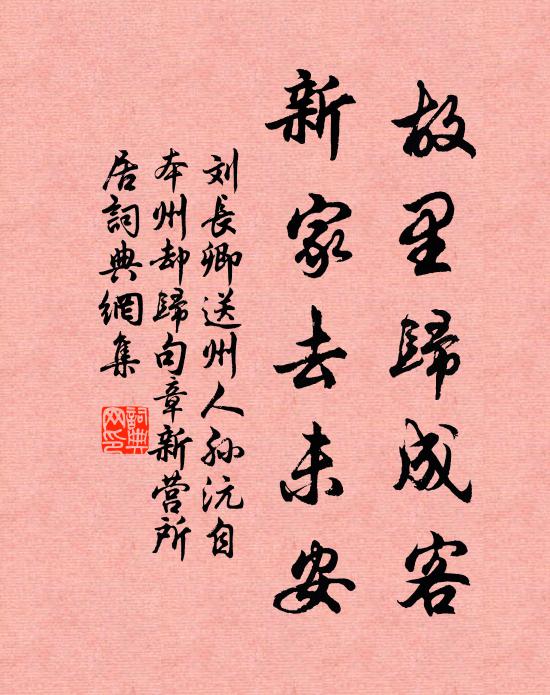 故里歸成客
新家去未安
刘長卿送州人孙沅自
本州却歸句章新营所
居詞典網集
詞典
网印